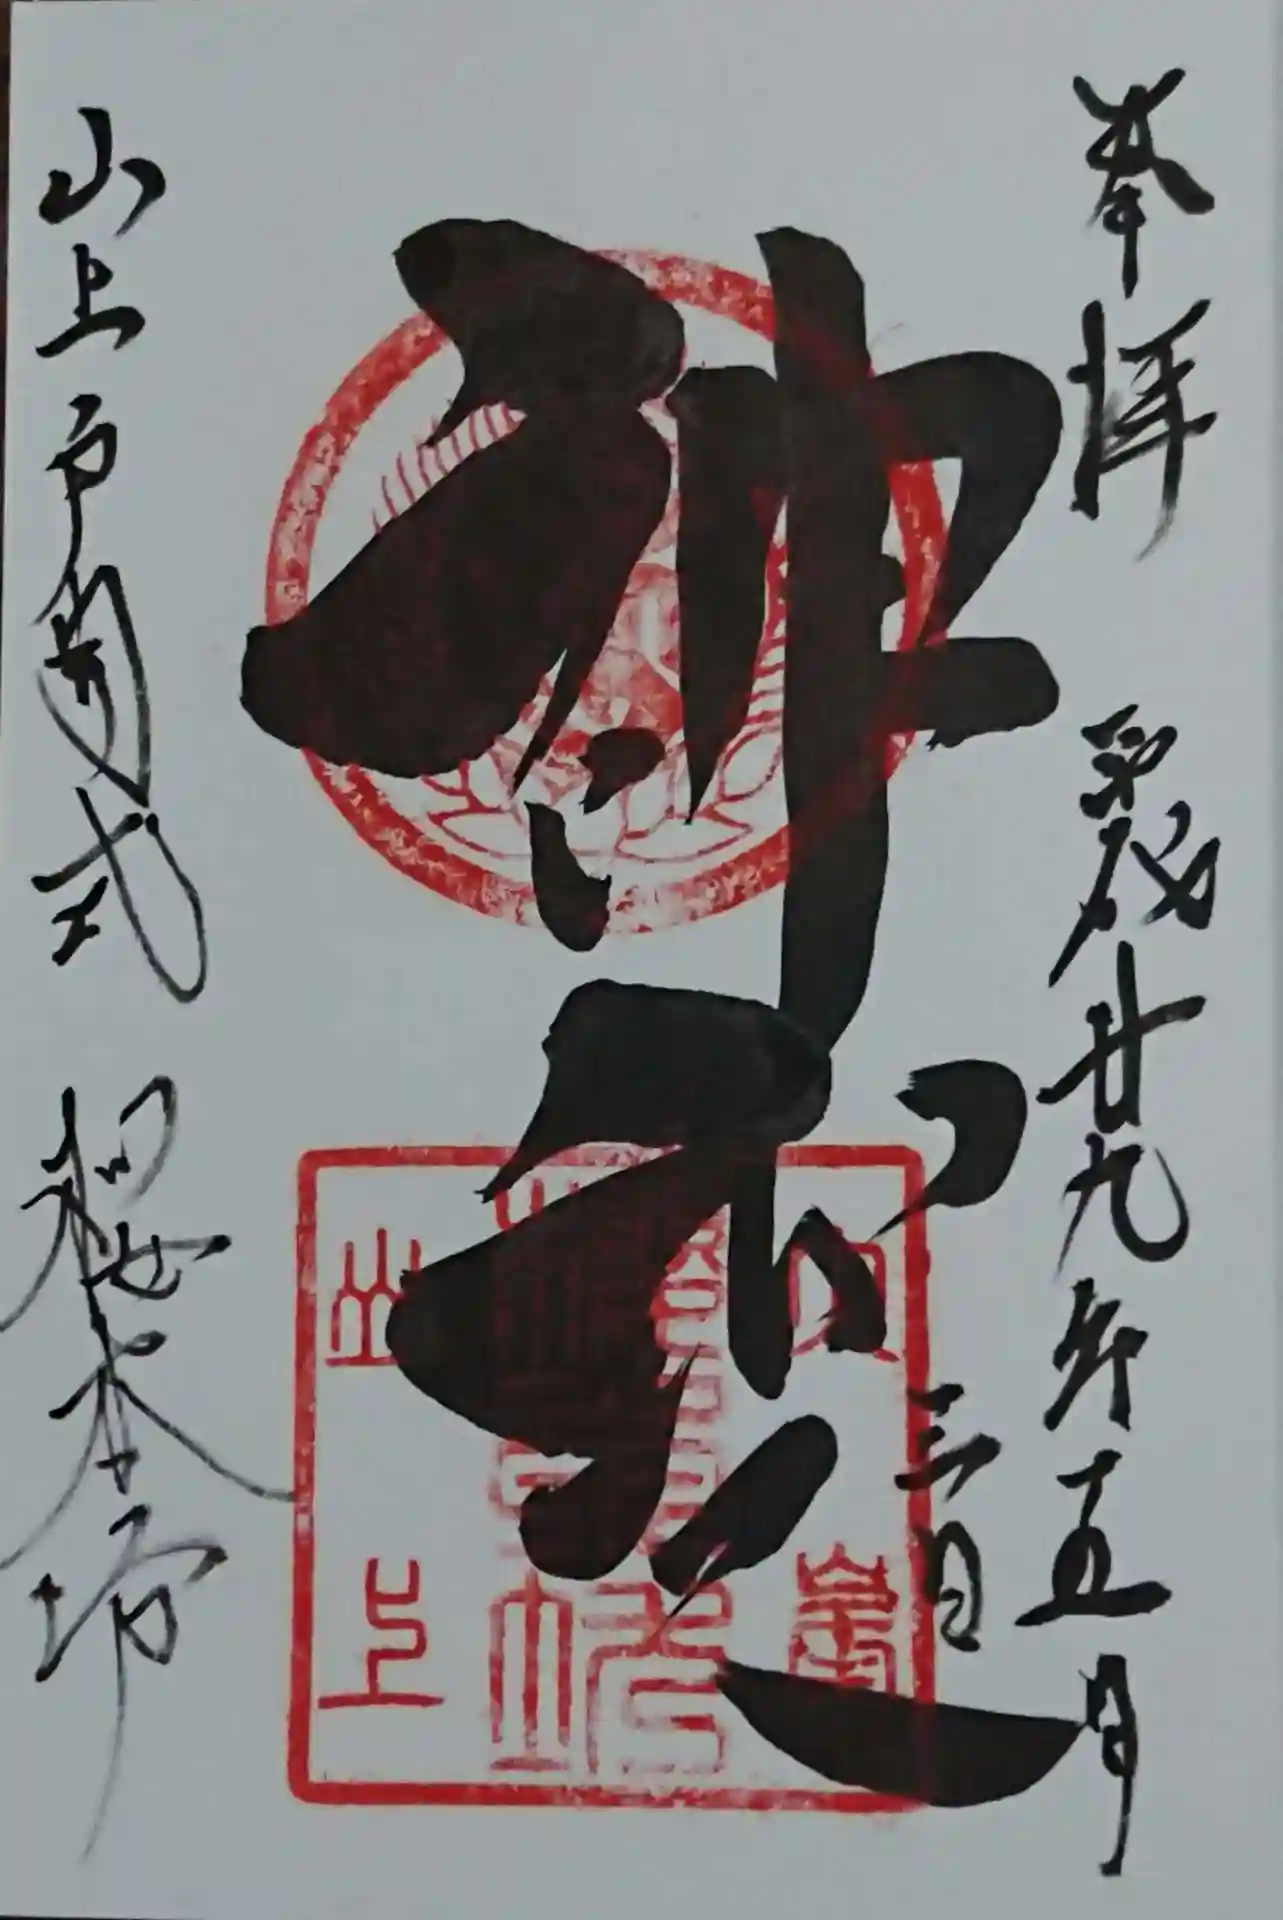 奉拝 平成廿九年五月
三日
神変
山上戸開式 櫻本坊
大峯
山上